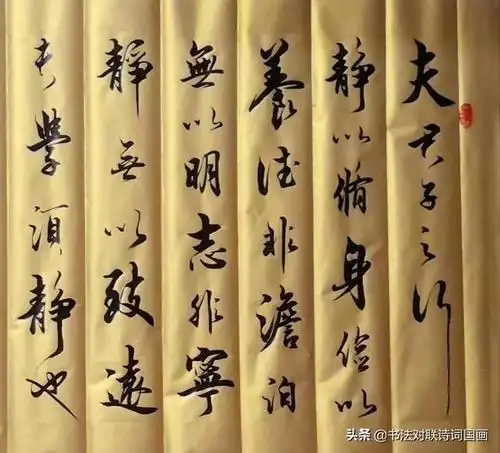 夫君子之行
静以脩身俭以
養德非澹泊
無以明志非寧
靜无以致遠
夫學須静也
头条 @书法对联诗词国画